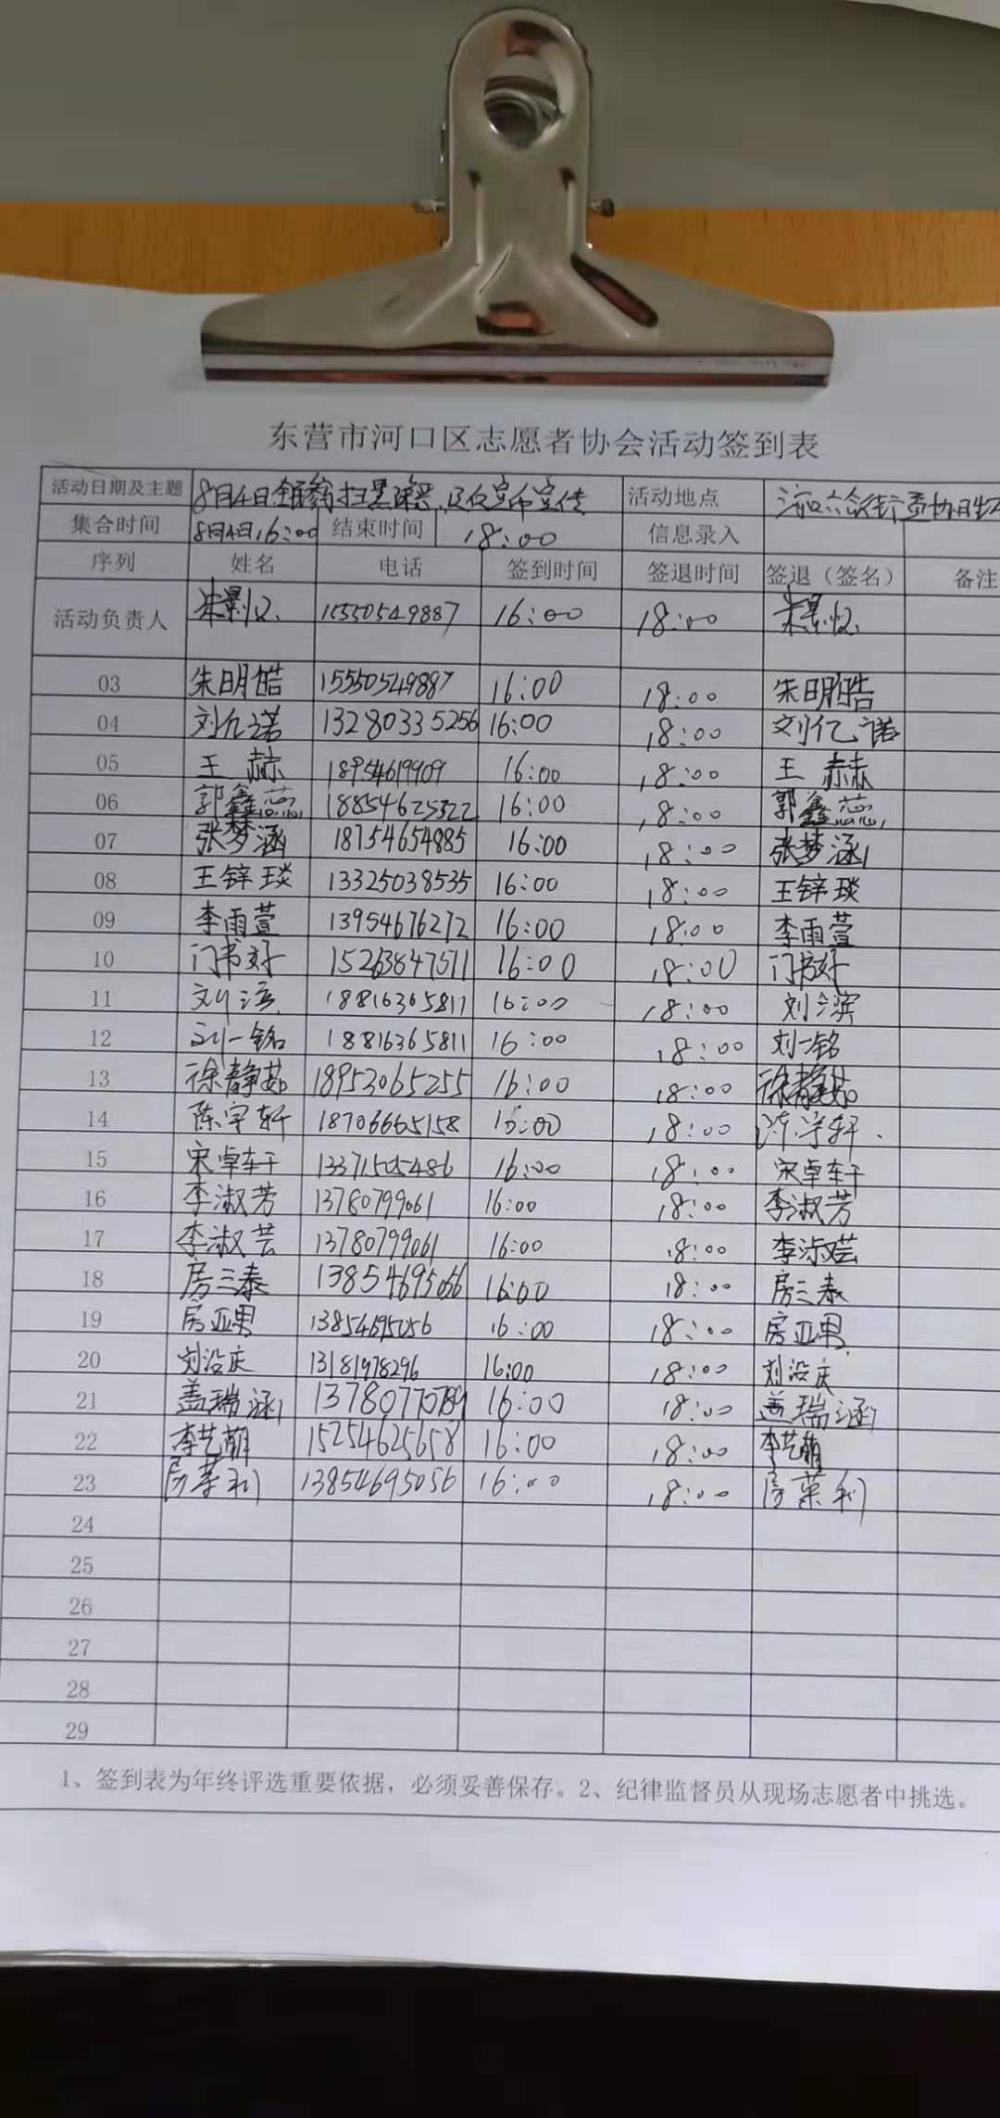 东营市河口区志愿者协会活动签到表
活动日期及主题 8月4日 扫黑除恶 宣传 活动地点
集合时间 8月4日16:00 结束时间 18:00 信息录入
序列 姓名 电话 签到时间 签退时间 签退（签名） 备注
活动负责人 15550549887 16:00 18:00
03 朱明皓 15550549887 16:00 18:00 朱明皓
04 刘亿诺 13280335256 16:00 18:00 刘亿诺
05 王赫 18954619909 16:00 18:00 王赫
06 郭鑫蕊 18854625322 16:00 18:00 郭鑫蕊
07 张梦涵 18754654885 16:00 18:00 张梦涵
08 王锌琰 13325038535 16:00 18:00 王锌琰
09 李雨萱 13954676272 16:00 18:00 李雨萱
10 门书好 15263847511 16:00 18:00 门书好
11 刘滨 18816365811 16:00 18:00 刘滨
12 刘一铭 18816365811 16:00 18:00 刘一铭
13 徐静茹 18953065255 16:00 18:00 徐静茹
14 陈宇轩 18706665158 16:00 18:00 陈宇轩
15 宋卓轩 13371505486 16:00 18:00 宋卓轩
16 李淑芳 13780799061 16:00 18:00 李淑芳
17 李淑芸 13780799061 16:00 18:00 李淑芸
18 房三泰 13854695066 16:00 18:00 房三泰
19 房亚男 13854695056 16:00 18:00 房亚男
20 刘没庆 13181978296 16:00 18:00 刘没庆
21 盖瑞涵 13780770789 16:00 18:00 盖瑞涵
22 李艺萌 15254625658 16:00 18:00 李艺萌
23 房莱利 13854695056 16:00 18:00 房莱利
24
25
26
27
28
29
1、签到表为年终评选重要依据，必须妥善保存。2、纪律监督员从现场志愿者中挑选。